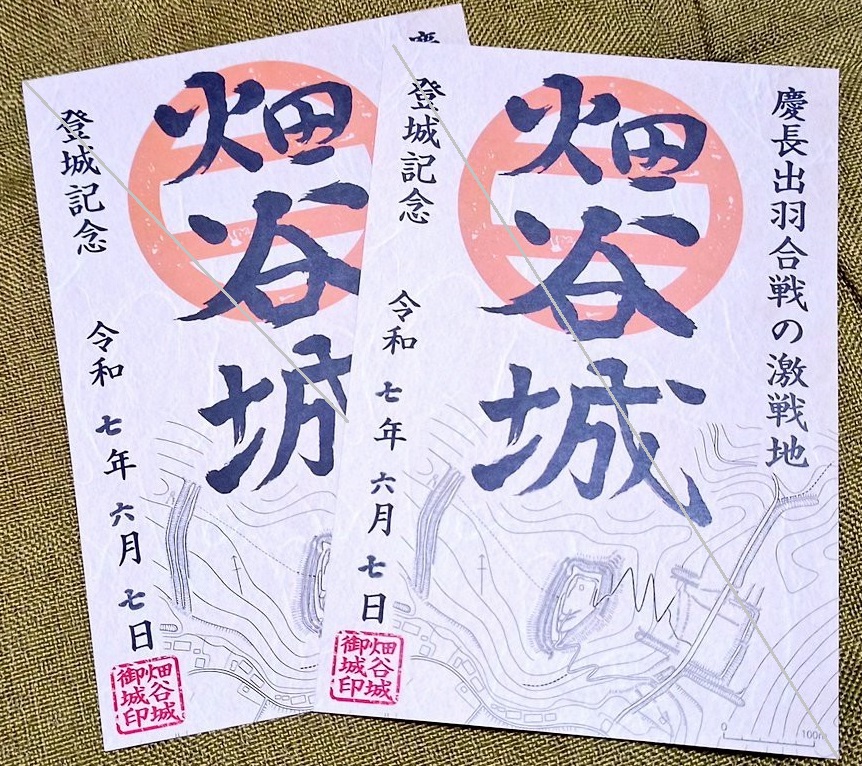 慶
畑谷城
登城記念
令和七年六月七日
畑谷城
御城印
慶長出羽合戦の激戦地
畑谷城
登城記念
令和七年六月七日
畑谷城
御城印
0 100m